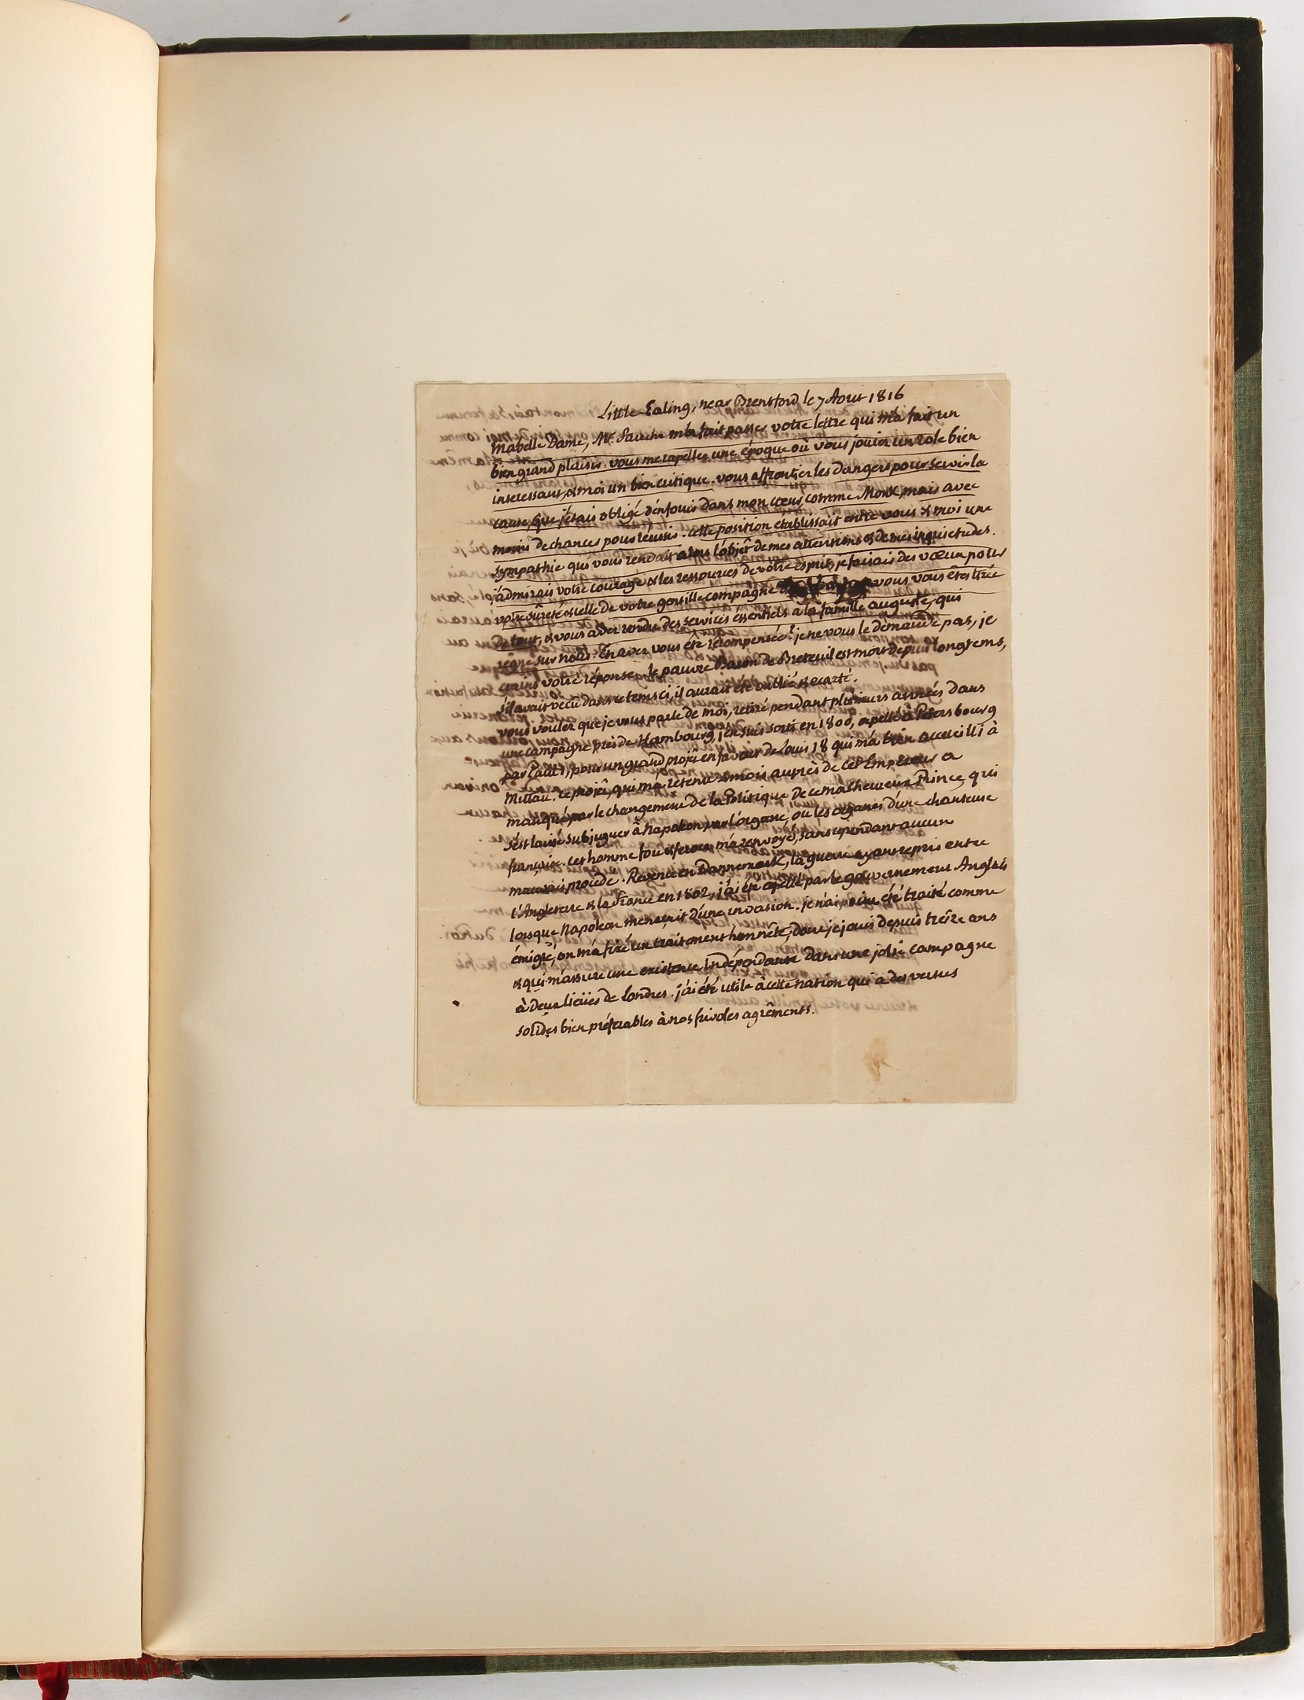 Little Ealing, near Brentford le 7 Aout 1816
Ma belle Dame, Mr. Fauche m'a fait passer votre lettre qui m'a fait un
bien grand plaisir. vous me rapellez une époque où vous jouiez un role bien
interessant, et moi un bien critique. vous affrontiez les dangers pour servir la
cause, que j'étais obligé d'enfouir dans mon coeur, comme Monk, mais avec
moins de chances pour réussir. cette position établissait entre vous et moi une
sympathie qui vous rendait alors l'objet de mes attentions et de mes inquietudes.
j'admirais votre courage et les ressources de votre esprit, je faisais des voeux pour
votre sûreté et celle de votre gentille compagne vous vous êtes tirée
de tout, et vous avez rendu des services éssentiels a la famille auguste, qui
règne sur nous. En avez vous été récompensée? je ne vous le démande pas, je
crains votre réponse. le pauvre Baron de Breteuil est mort depuis longtems,
s'il avait vecu dans ce tems ci, il aurait été oublié et ecarté.
vous voulez que je vous parle de moi, retiré pendant plusieurs années dans
une campagne près de Hambourg, j'en suis sorti en 1800, apellé à Petersbourg
par Paul 1, pour un grand projet en faveur de Louis 18 qui m'a bien accueilli à
Mittau. ce projet, qui m'a retenu mois auprès de cet Empereur a
manqué par le changement de la Politique de ce malheureux Prince, qui
s'est laissé subjuguer à Napoleon par l'organe, ou les organes d'une chanteuse
française. cet homme fou et feroce m'a renvoyé, sans cependant aucun
mauvais procédé. Revenu en Dannemark, la guerre ayant repris entre
l'Angleterre et la France en 1802, j'ai été apellé par le gouvernement Anglais
lorsque Napoleon menaçait d'une invasion. je n'ai point été traité comme
émigré, on m'a fixé un traitement honnête, dont je jouis depuis treize ans
et qui m'assure une existence indépendante dans une jolie campagne
à deux lieües de Londres. j'ai été utile à cette nation qui a des vertus
solides bien préférables à nos frivoles agréments.